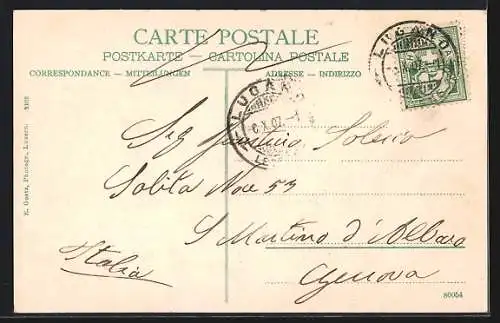 CARTE POSTALE
POSTKARTE — CARTOLINA POSTALE
CORRESPONDANCE — MITTEILUNGEN
ADRESSE — INDIRIZZO
LUGANO
LUGANO
6.X.07.
Sig Solero
Salita Nove 53
S Martino d'Albaro
Genova
Italia
E. Goetz, Photogr., Luzern.
80054